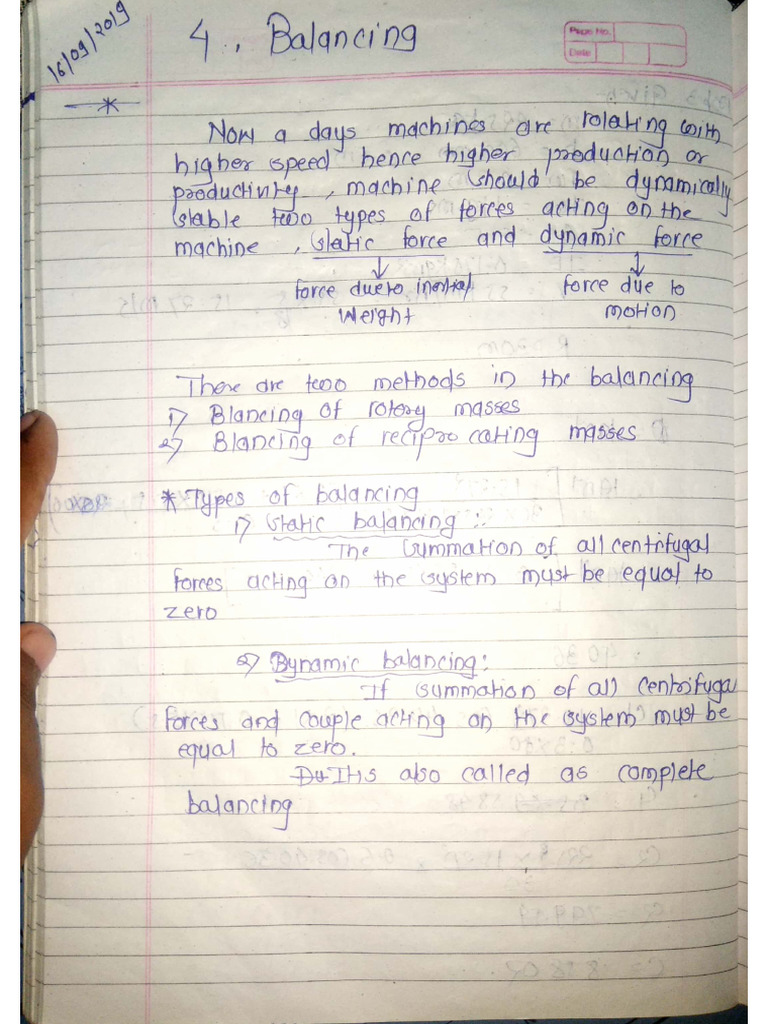 16/09/2019
4. Balancing
Page No.
Date
Now a days machines are rotating with
higher speed hence higher production or
productivity, machine should be dynamically
stable two types of forces acting on the
machine, static force and dynamic force
force due to inertial force due to
Weight motion
There are two methods in the balancing
1) Blancing of rotory masses
2) Blancing of reciprocating masses
* Types of balancing
1) Static balancing :-
The summation of all centrifugal
forces acting on the system must be equal to
zero
2) Dynamic balancing:
If summation of all centrifugal
forces and couple acting on the system must be
equal to zero.
It is also called as complete
balancing